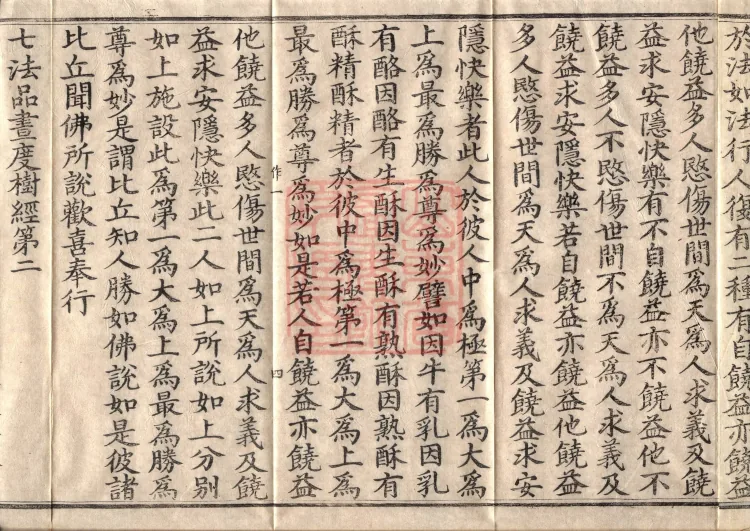 於法如法行人復有二種有自饒益亦饒益
他饒益多人愍傷世間爲天爲人求義及饒
益求安隱快樂有不自饒益亦不饒益他不
饒益多人不愍傷世間不爲天爲人求義及
饒益求安隱快樂若自饒益亦饒益他饒益
多人愍傷世間爲天爲人求義及饒益求安
隱快樂者此人於彼人中爲極第一爲大爲
上爲最爲勝爲尊爲妙譬如因牛有乳因乳
有酪因酪有生酥因生酥有熟酥因熟酥有
酥精酥精者於彼中爲極第一爲大爲上爲
最爲勝爲尊爲妙如是若人自饒益亦饒益
作一 四
他饒益多人愍傷世間爲天爲人求義及饒
益求安隱快樂此二人如上所說如上分別
如上施設此爲第一爲大爲上爲最爲勝爲
尊爲妙是謂比丘知人勝如佛說如是彼諸
比丘聞佛所說歡喜奉行
七法品晝度樹經第二